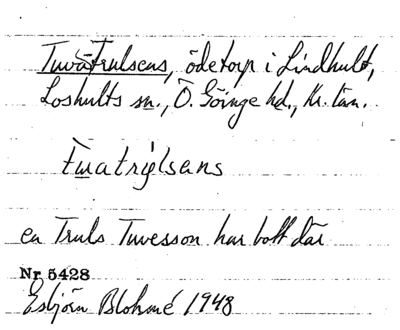 Tuvatrulsens, ödetorp i Lindhult,
Loshults sn., Ö. Göinge hd., Kr. län.
twatrýlsens
en Truls Tuvesson har bott där
Nr 5428
Esbjörn Blohmé 1948